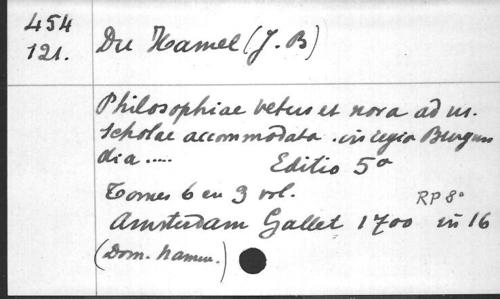 454
121.
Du Hamel (J. B)
Philosophiae vetus et nova ad us.
scholae accommodata . in regia Burgun
dia .....
Editio 5a
Tomes 6 en 3 vol.
RP 8°
Amsterdam Gallet 1700 in 16
(Dom. namur.)